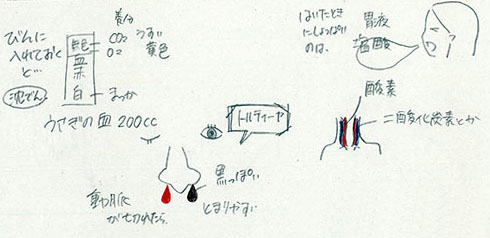 びんに
入れておくと
と…
沈でん
養分
CO₂
O₂
うすい
黄色
血
赤
白
まっか
うさぎの血 200cc
トルティーヤ
動脈
が切れたら
黒っぽい
とまりやすい
はいたとき
にしょっぱい
のは、
胃液
塩酸
酸素
二酸化炭素とか